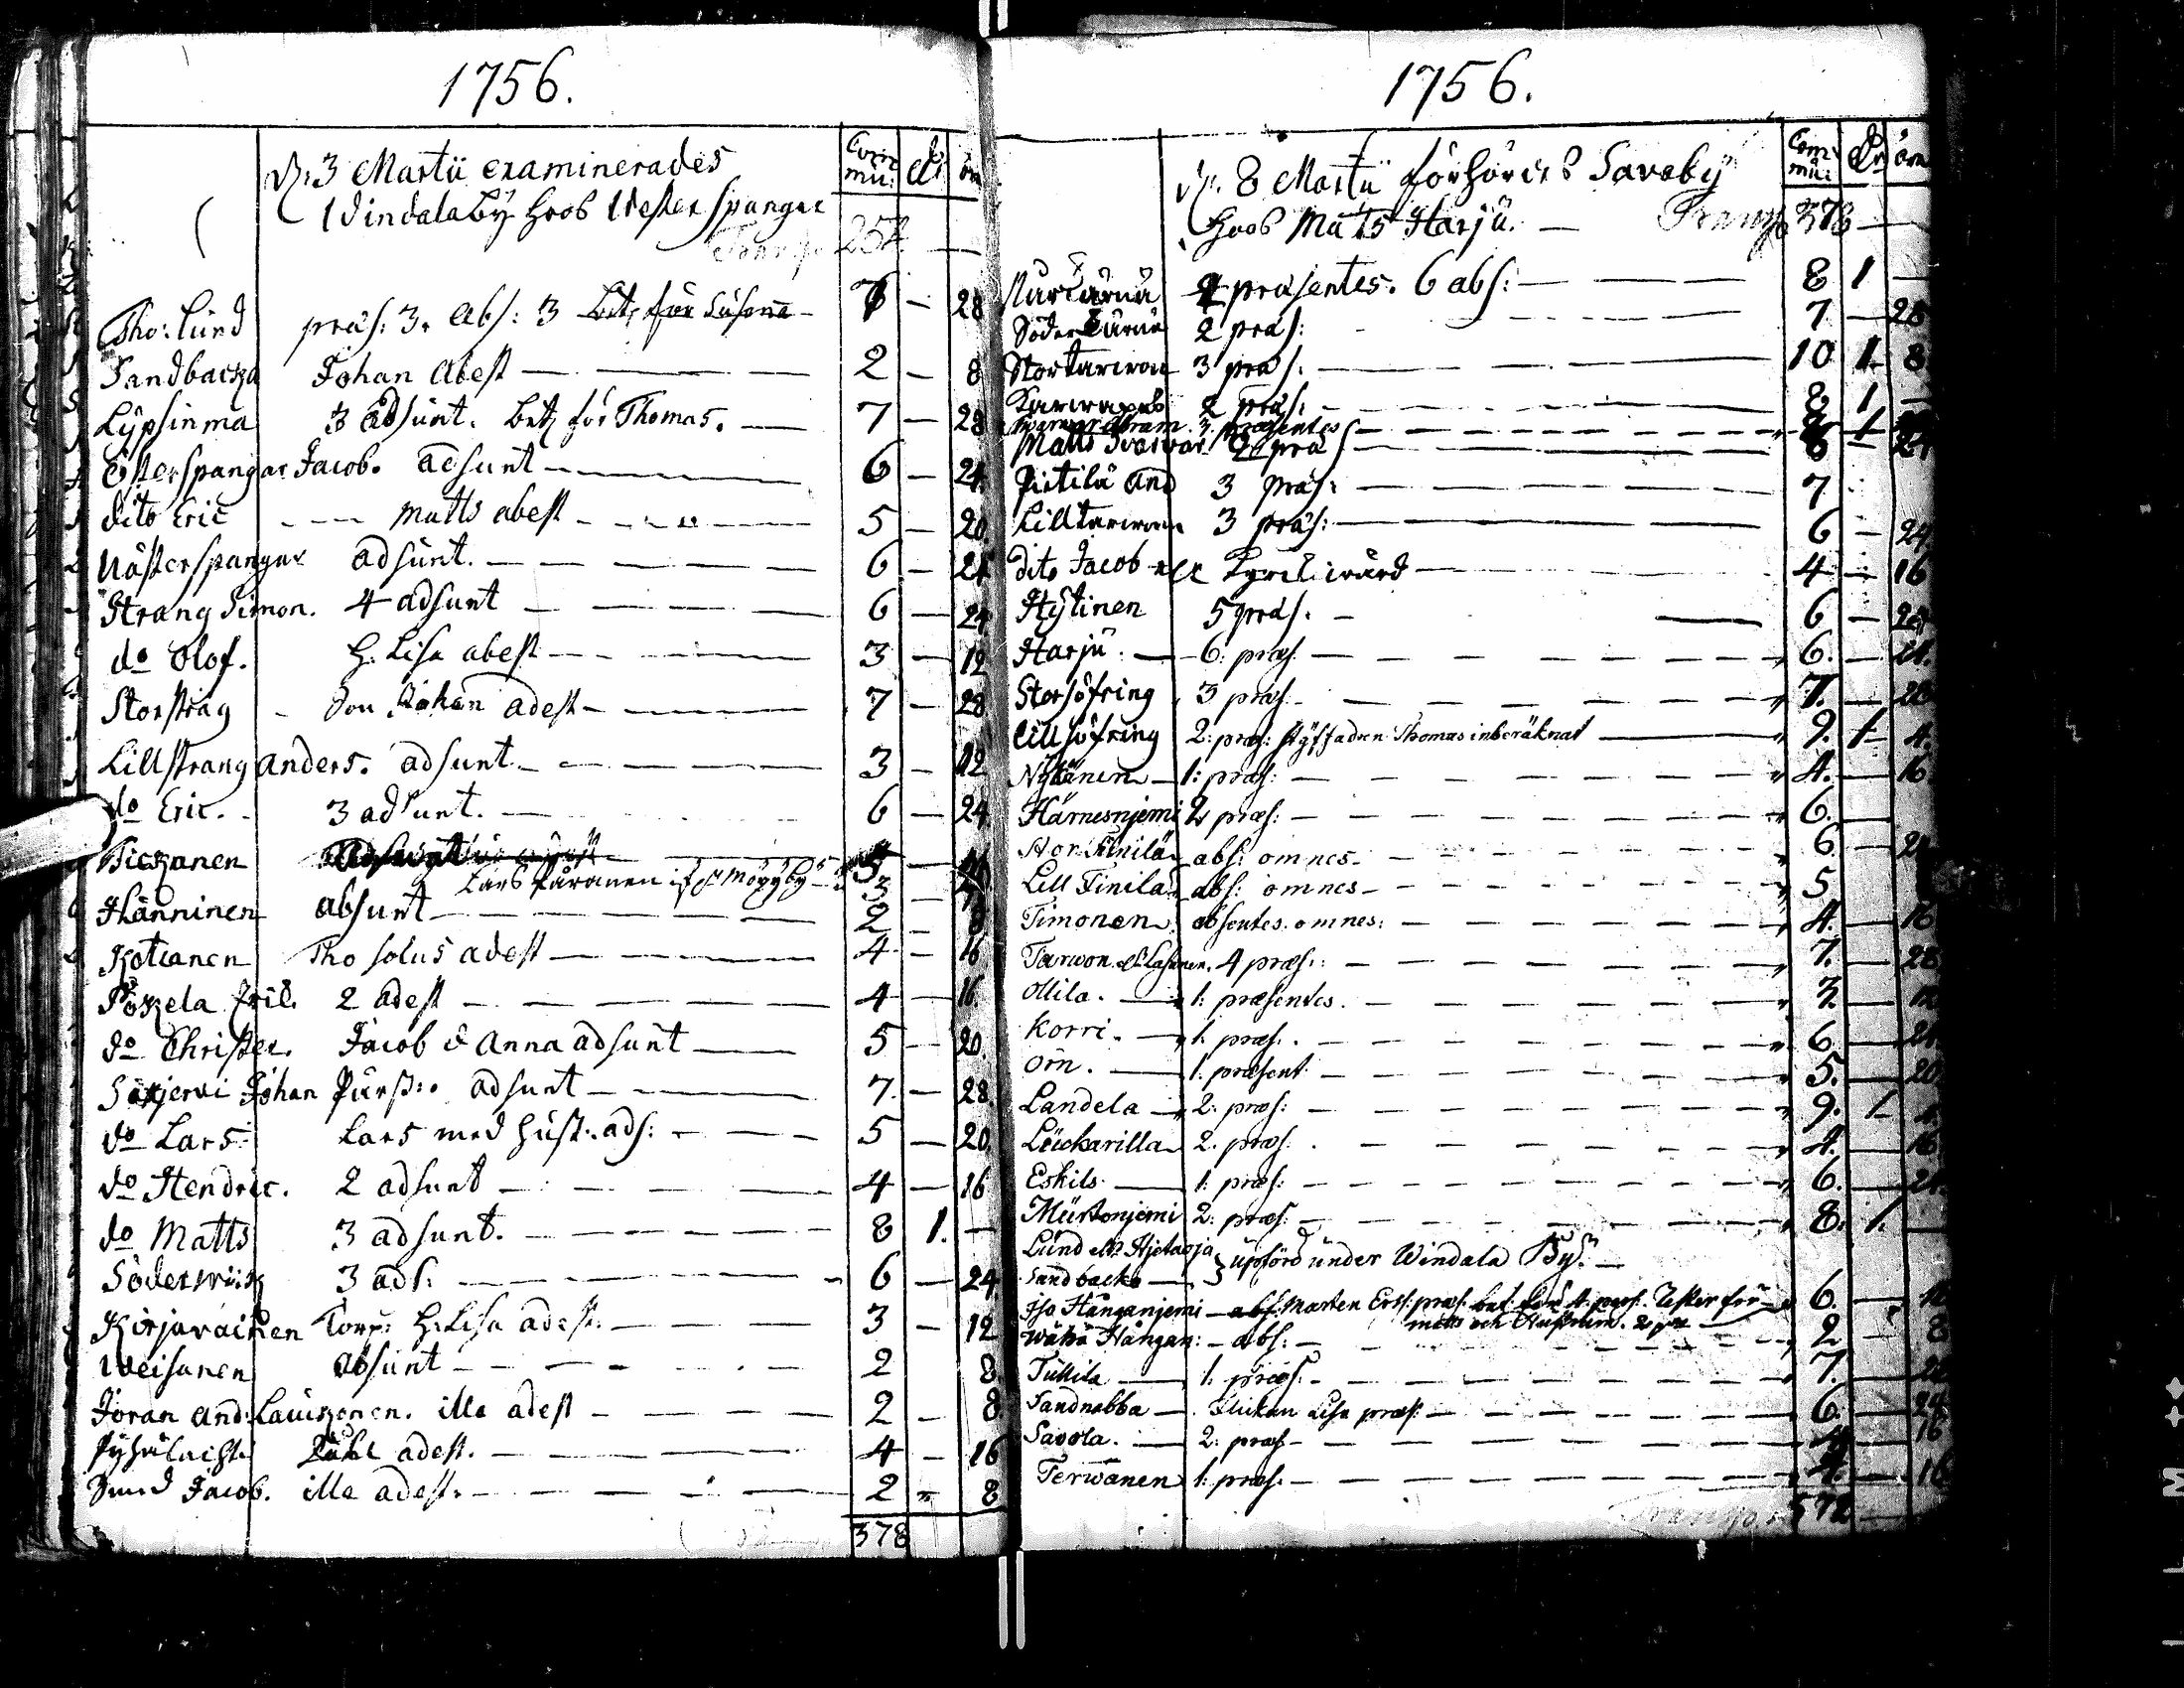 1756.
D. 3 Martii examinerades
Windalaby hoos Wester spangar
Com mu: dr ör
Transp 254
Tho: Lund præs: 3. Abs: 3 bet. för Susanna 7 — 28
Sandbacka Johan Abest 2 — 8
Lypsinma 3 adsunt. bet för Thomas. 7 — 28
Österspangar Jacob. adsunt 6 — 24.
dito Eric Matts abest 5 — 20.
Wästerspangar adsunt. 6 — 24
Strang Simon. 4 adsunt 6 — 24.
do Olof. H. Lisa abest 3 — 12
Storstrag Son Johan adest 7 — 28
Lillstrang Anders. adsunt. 3 — 12
do Eric. 3 adsunt. 6 — 24.
Pieckanen 5
Lars Påranen 3
Hänninen absunt 2 — 8
Kotianen Tho solus adest 4 — 16
Påckela Eric. 2 adest 4 — 16.
do Christer. Jacob & Anna adsunt 5 — 20.
Särjervi Johan adsunt 7. — 28.
do Lars Lars med hust: ads: 5 — 20.
do Hendric. 2 adsunt 4 — 16
do Matts 3 adsunt. 8 1. —
Söderwiik 3 ads: 6 — 24.
Kirjavainen Torp: H: Lisa adest: 3 — 12
Weisanen absunt 2 8
Joran And: Lauckonen. illa adest 2 — 8
Pyhälacht adest. 4 — 16
Sund Jacob. illa adest. 2 „ 8
378
1756.
D. 8 Martii förhördes Savaby
hoos Mats Harju. — Transp 378
Com mu: Dr öre
præsentes. 6 abs: 8 1 —
Söder 2 præs: 7 — 28
Stortarwon 3 præs: 10 1 8
2 præs: 8 1 —
3 præsentes
Matts 2 præs
Pietilä And 3 præs: 7
Lilltarwon 3 præs: 6 — 24
dito Jacob 4 — 16
Hytinen 5 præs. 6 — 24
Harju. 6: præs. 6. — 24.
Storsöfring 3 præs. 7. — 28
Lillsöfring 2: præs: styffadren Thomas inberäknat 9. 1 4.
Nykänen 1: præs: 4. — 16
Härnesnjemi 2 præs: 6.
Stor Finilä abs: omnes. 6. — 24
Lill Finila abs: omnes 5
Timonen absentes. omnes: 4. — 16
Tarwon. 4 præs: 7. — 28.
Ollila. 1: præsentes. 3. — 12
Korri. 1. præs. 6. — 24.
Orn. 1: præsent. 5. — 20
Landela 2: præs: 9. 1. 4
Leückarilla 2. præs: 4. — 16
Eskils 1: præs: 6. — 24.
Mürtonjemi 2: præs: 8. 1. —
Lund
Sandbacka } upförd under Windala By.
Iso Hånganjemi abs: Marten Erss: præs. 6.
Wähä Hångan: abs: 2 — 8
Tullila 1. præs: 7.
Sandnabba Flickan Lisa præs: 6. — 24
Savola. 2: præs 4 16
Terwanen 1: præs. 4. — 16
Transpor 572